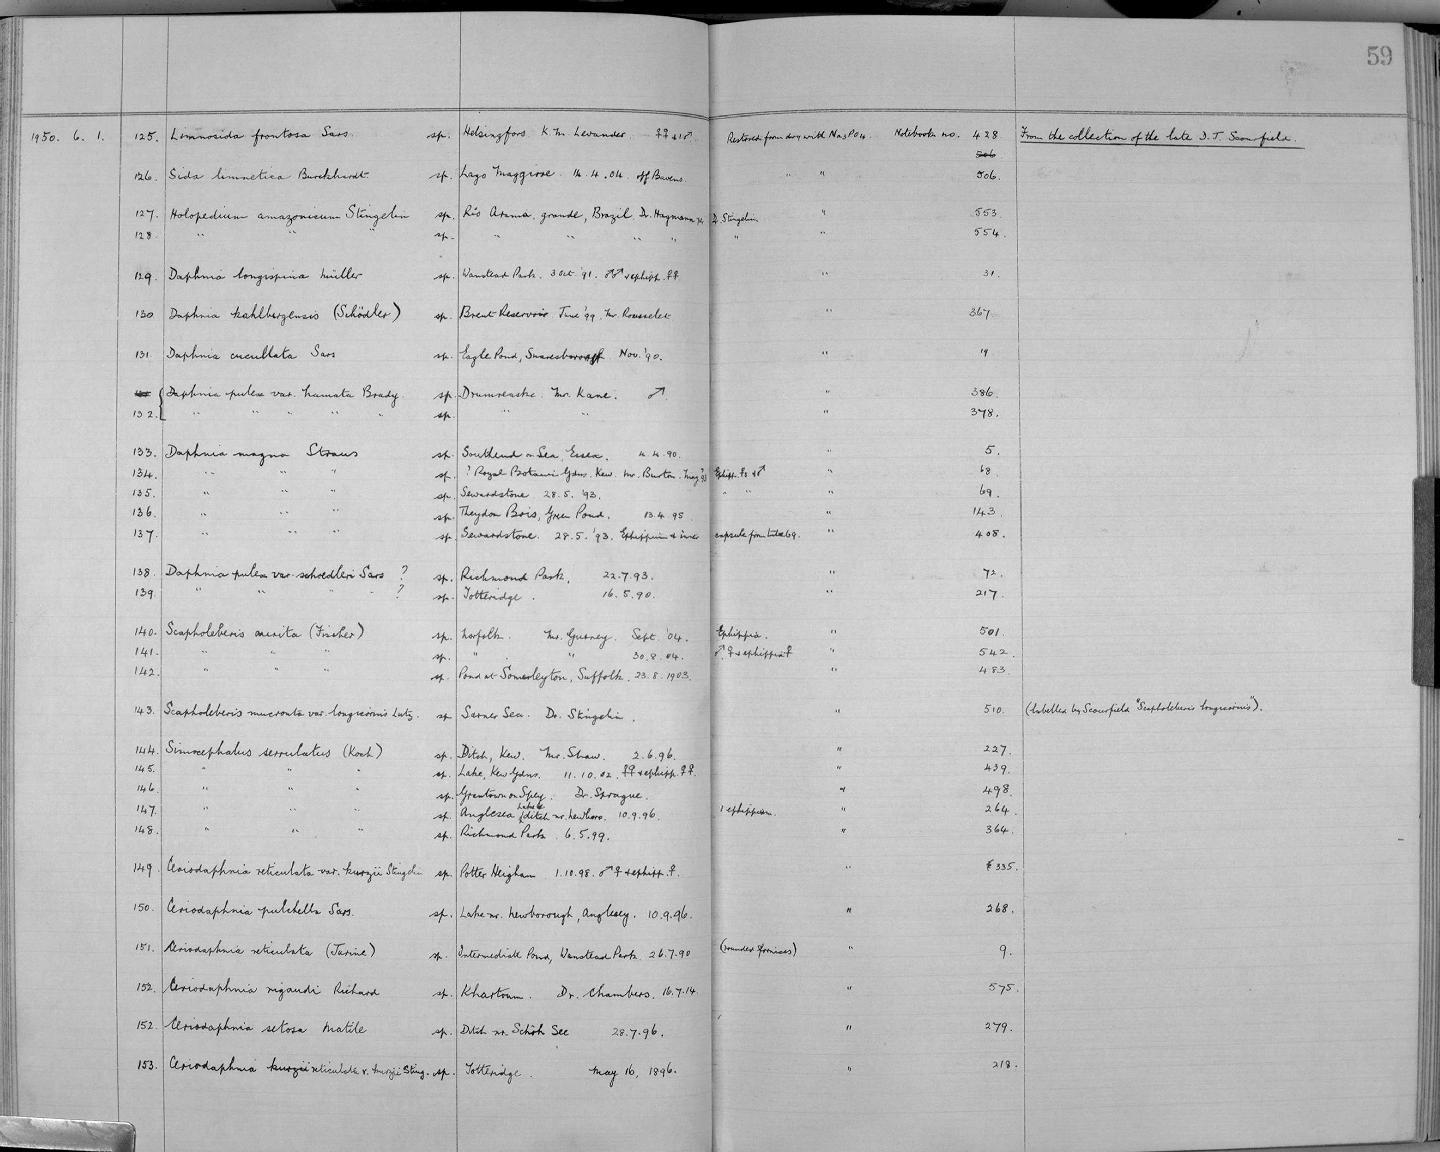 59
1950. 6. 1. 125. Limnosida frontosa Sars. sp. Helsingfors. K. M. Levander. ♀♀ & 1♂. Restored from dry with Na3PO4. Notebook no. 428 From the collection of the late D. J. Scourfield.
506
126. Sida limnetica Burckhardt sp. Lago Maggiore. 14.4.04. off Baveno. " " 506.
127. Holopedium amazonicum Stingelin sp. Rio Arama grande, Brazil. Dr. Hagmann per Dr. Stingelin " 553.
128. " " " sp. " " " " " " 554.
129. Daphnia longispina Müller sp. Wanstead Park. 3 Oct '91. ♂♂ & ephipp. ♀♀ " 31.
130 Daphnia kahlbergensis (Schödler) sp. Brent Reservoir June '99. Mr. Rousselet " 367
131. Daphnia cucullata Sars sp. Eagle Pond, Snaresbrook Nov. '90. " 19
Daphnia pulex var. hamata Brady. sp. Drumreaske. Mr. Kane. ♂. " 386.
132. " " " " " sp. " " " 378.
133. Daphnia magna Straus sp. Southend on Sea, Essex. 4.4.90. " 5.
134. " " " sp. ? Royal Botanic Gdns. Kew. Mr. Burton. May '93 Ephipp. ♀s & ♂ " 68
135. " " " sp. Sewardstone 28.5.'93. " " " 69.
136. " " " sp. Theydon Bois, Green Pond. 13.4.95 " 143.
137. " " " sp. Sewardstone. 28.5.'93. Ephippium & inner capsule from tube 69. " 408.
138. Daphnia pulex var. schoedleri Sars ? sp. Richmond Park. 22.7.93. " 72.
139. " " " " ? sp. Totteridge. 16.5.90. " 217.
140. Scapholeberis aurita (Fischer) sp. Norfolk. Mr. Gurney. Sept. '04. Ephippia. " 501.
141. " " " sp. " " 30.8.04. ♂. ♀ & ephippia ♀ " 542.
142. " " " sp. Pond at Somerleyton, Suffolk. 23.8.1903. " 483.
143. Scapholeberis mucronata var. longicornis Lutz. sp. Sarner See. Dr. Stingelin. " 510. (Labelled by Scourfield "Scapholeberis longicornis").
144. Simocephalus serrulatus (Koch) sp. Ditch, Kew. Mr. Shaw. 2.6.96. " 227.
145. " " " sp. Lake, Kew Gdns. 11.10.02. ♀♀ & ephipp. ♀♀. " 439.
146 " " " sp. Grantown on Spey. Dr. Sprague. " 498.
147. " " " sp. Anglesea Lake & ditch nr. Newboro. 10.9.96. 1 ephippium. " 264.
148. " " " sp. Richmond Park 6.5.99. " 364.
149. Ceriodaphnia reticulata var. kurzii Stingelin sp. Potter Heigham 1.10.98. ♂ ♀ & ephipp. ♀. " 335.
150. Ceriodaphnia pulchella Sars. sp. Lake nr. Newborough, Anglesey. 10.9.96. " 268.
151. Ceriodaphnia reticulata (Jurine) sp. Intermediate Pond, Wanstead Park. 26.7.90 (rounded fornices) " 9.
152. Ceriodaphnia rigaudi Richard sp. Khartoum. Dr. Chambers. 16.7.14. " 575.
152. Ceriodaphnia setosa Matile sp. Ditch nr. Schöh See 28.7.96. " 279.
153. Ceriodaphnia kurzii reticulata v. kurzii Sting. sp. Totteridge. May 16, 1896. " 218.